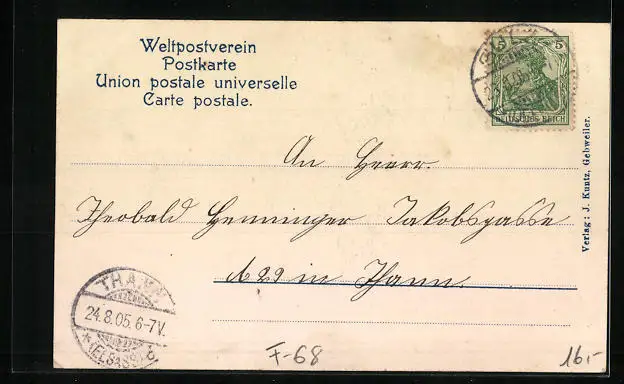 Weltpostverein
Postkarte
Union postale universelle
Carte postale.
5
DEUTSCHES REICH
An Herrn
Theobald Henninger Jakobsgasse
in Thann.
THANN
24.8.05. 6-7V.
(ELSASS)
Verlag: J. Kuntz, Gebweiler.
F-68
16.-